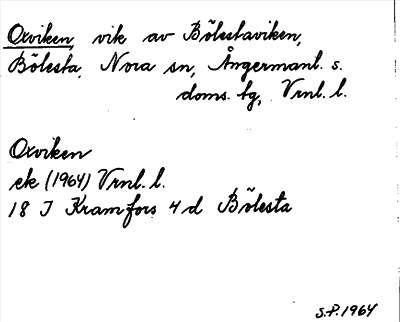 Oxviken, vik av Bölestaviken,
Bölesta, Nora sn, Ångermanl. s.
doms. tg, Vrnl. l.
Oxviken
ek (1964) Vrnl. l.
18 J Kramfors 4 d Bölesta
S.P. 1964